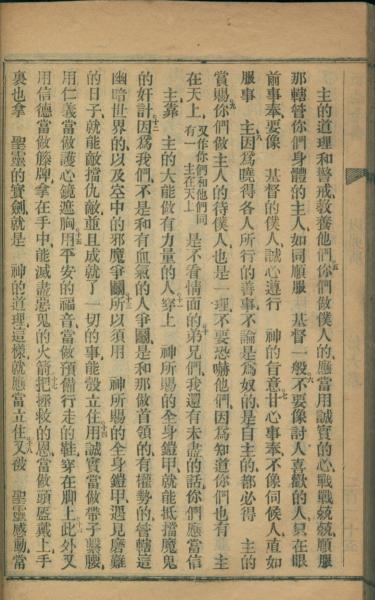 主的道理和警戒教養他們五你們做僕人的應當用誠實的心戰戰兢兢順服
那轄管你們身體的主人如同順服 基督一般六不要像討人喜歡的人只在眼
前事奉要像 基督的僕人誠心遵行 神的旨意七甘心事奉不像伺候人直如
服事 主八因為曉得各人所行的善事不論是為奴的是自主的都必得 主的
賞賜九你們做主人的待僕人也是一理不要恐嚇他們因為知道你們也有 主
在天上又作你們和他們同有一 主在天上 是不看情面的十弟兄們我還有未盡的話你們應當信
主靠 主的大能做有力量的人十一穿上 神所賜的全身鎧甲就能抵擋魔鬼
的奸計十二因為我們不是和有血氣的人爭鬭是和那做首領的有權勢的管轄這
幽暗世界的以及空中的邪魔爭鬭十三所以須用 神所賜的全身鎧甲遇見磨難
的日子就能敵擋仇敵並且成就了一切的事能彀立住十四用誠實當做帶子繫腰
用仁義當做護心鏡遮胸十五用平安的福音當做預備行走的鞋穿在脚上十六此外又
用信德當做籐牌拿在手中能滅盡惡鬼的火箭十七把拯救的恩當做頭盔戴上手
裏也拿 聖靈的寶劍就是 神的道理這樣就應當立住十八又被 聖靈感動當